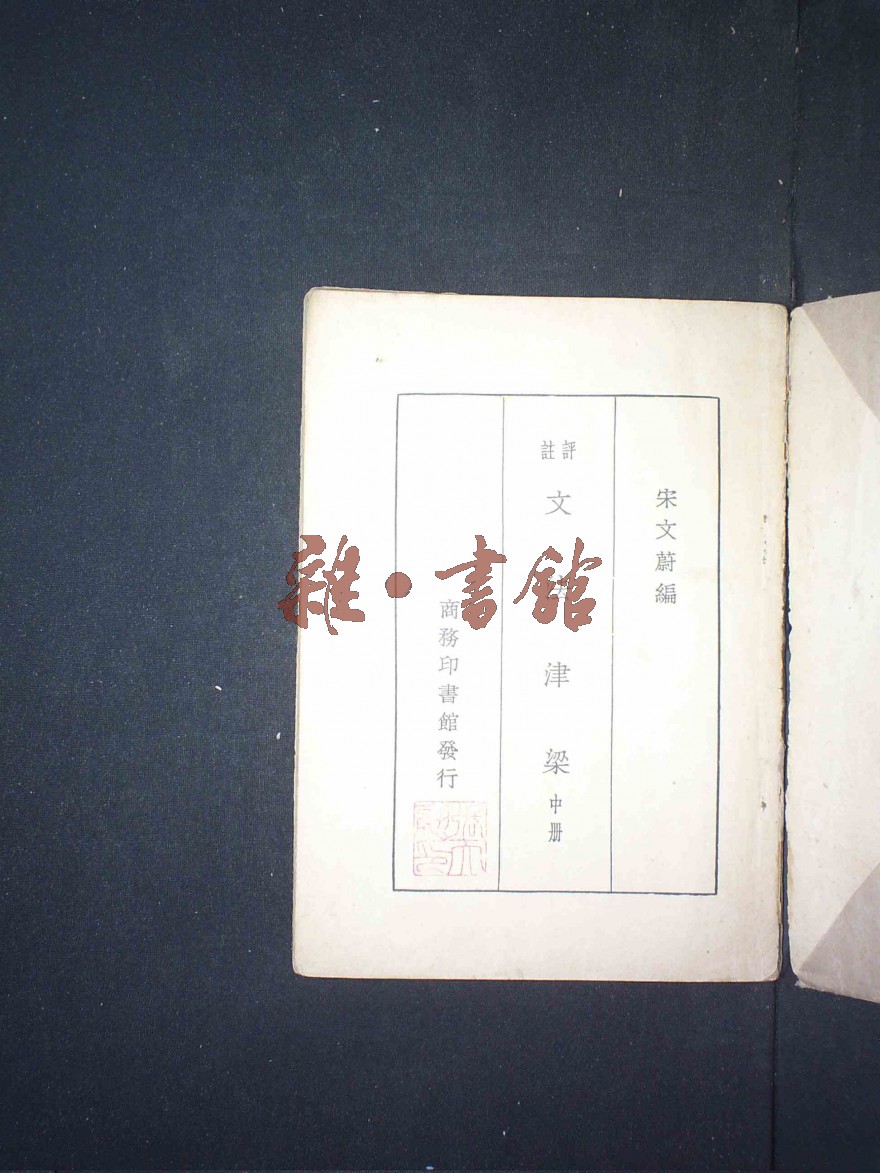 宋文蔚編
評註
文法津梁 中册
商務印書館發行
雜·書館